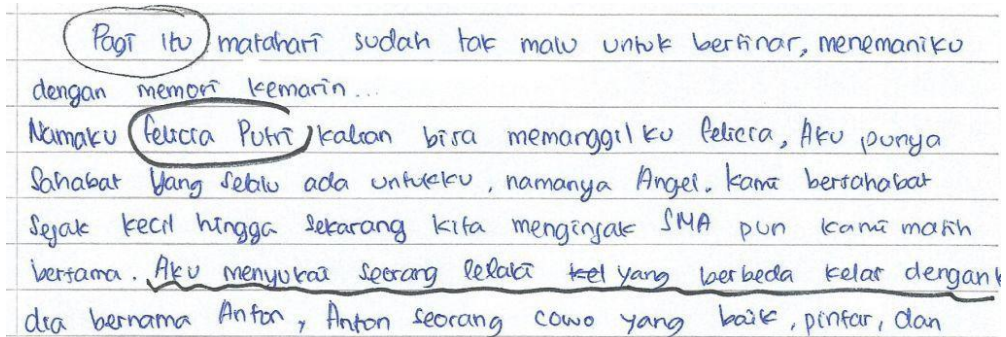 Pagi itu matahari sudah tak malu untuk bersinar, menemaniku
dengan memori kemarin...
Namaku Felicia Putri kalian bisa memanggil ku Felicia, Aku punya
Sahabat yang selalu ada untukku, namanya Angel. kami bersahabat
Sejak kecil hingga sekarang kita menginjak SMA pun kami masih
bersama. Aku menyukai seorang lelaki kel yang berbeda kelas dengank
dia bernama Anton, Anton seorang cowo yang baik, pintar, dan